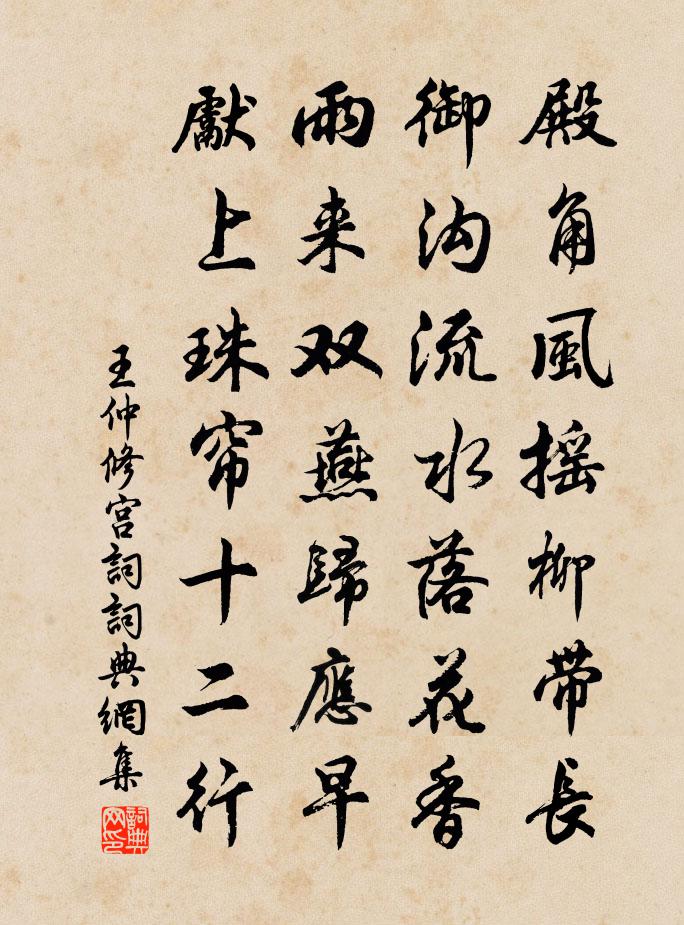 殿角風摇柳带長
御沟流水落花香
雨来双燕歸應早
獻上珠帘十二行
王仲修宫詞詞典網集
詞典网印